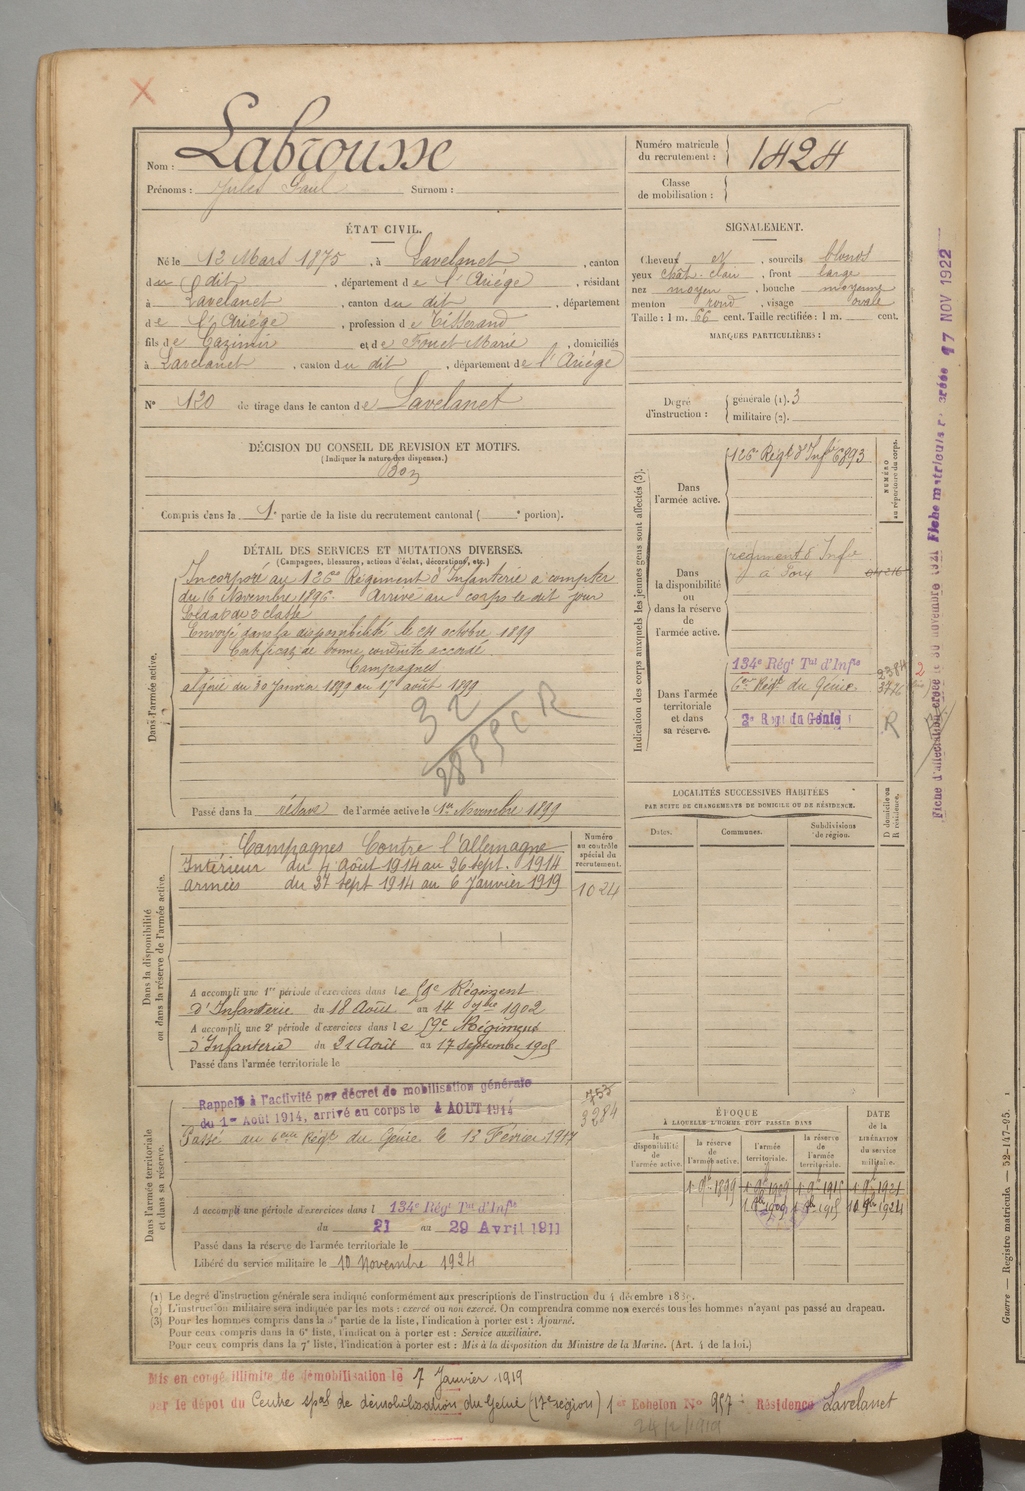 Nom : Labrousse
Prénoms : Jules Paul Surnom :
Numéro matricule du recrutement : 1424
Classe de mobilisation :
ÉTAT CIVIL.
Né le 13 Mars 1875, à Lavelanet, canton
du dit, département de l'Ariège, résidant
à Lavelanet, canton du dit, département
de l'Ariège, profession de Tisserand
fils de Cazimir et de Fouet Marie, domiciliés
à Lavelanet, canton du dit, département de l'Ariège
N° 120 de tirage dans le canton de Lavelanet
SIGNALEMENT.
Cheveux et, sourcils blonds
yeux chât. clair, front large
nez moyen, bouche moyenne
menton rond, visage ovale
Taille : 1 m. 66 cent. Taille rectifiée : 1 m. cent.
MARQUES PARTICULIÈRES :
Degré d'instruction : générale (1). 3
militaire (2).
DÉCISION DU CONSEIL DE REVISION ET MOTIFS.
(Indiquer la nature des dispenses.)
Bon
Compris dans la 1e partie de la liste du recrutement cantonal ( e portion).
DÉTAIL DES SERVICES ET MUTATIONS DIVERSES.
(Campagnes, blessures, actions d'éclat, décorations, etc.)
Dans l'armée active.
Incorporé au 126e Régiment d'Infanterie à compter
du 16 Novembre 1896. Arrivé au corps le dit jour
Soldat de 2e classe
Envoyé dans la disponibilité le 24 octobre 1899
Certificat de bonne conduite accordé.
Campagnes
Algérie du 30 Janvier 1899 au 17 août 1899
32
Passé dans la réserve de l'armée active le 1er Novembre 1899
Indication des corps auxquels les jeunes gens sont affectés (3).
Dans l'armée active.
126e Régt d'Infie 6893
NUMÉRO au répertoire du corps.
Dans la disponibilité ou dans la réserve de l'armée active.
régiment d'Infie
à Foix
Dans l'armée territoriale et dans sa réserve.
134e Régt Tal d'Infie 2384
6e Régt du Génie 3726
2e Regt du Génie R
LOCALITÉS SUCCESSIVES HABITÉES
PAR SUITE DE CHANGEMENTS DE DOMICILE OU DE RÉSIDENCE.
Dates. Communes. Subdivisions de région. D domicile ou R résidence.
Dans la disponibilité ou dans la réserve de l'armée active.
Campagnes Contre l'Allemagne
Intérieur du 4 Août 1914 au 26 sept. 1914
armées du 27 sept 1914 au 6 Janvier 1919
Numéro au contrôle spécial du recrutement.
1024
A accompli une 1re période d'exercices dans le 59e Régiment
d'Infanterie du 18 Août au 14 7bre 1902
A accompli une 2e période d'exercices dans le 59e Régiment
d'Infanterie du 21 Août au 17 Septembre 1905
Passé dans l'armée territoriale le
Dans l'armée territoriale et dans sa réserve.
Rappelé à l'activité par décret de mobilisation générale
du 1er Août 1914, arrivé au corps le 4 AOUT 1914
Passé au 6eme Régt du Génie le 13 Février 1917
753
3284
A accompli une période d'exercices dans l 134e Régt Tal d'Infie
du 21 au 29 Avril 1911
Passé dans la réserve de l'armée territoriale le
Libéré du service militaire le 10 Novembre 1924
ÉPOQUE
À LAQUELLE L'HOMME DOIT PASSER DANS
la disponibilité de l'armée active. la réserve de l'armée active. l'armée territoriale. la réserve de l'armée territoriale.
DATE de la LIBÉRATION du service militaire.
1 9bre 1899 1 9bre 1909 1 9bre 1915 1 9bre 1921
1 9bre 1909 1 9bre 1915 10 9bre 1924
(1) Le degré d'instruction générale sera indiqué conformément aux prescriptions de l'instruction du 4 décembre 1889.
(2) L'instruction militaire sera indiquée par les mots : exercé ou non exercé. On comprendra comme non exercés tous les hommes n'ayant pas passé au drapeau.
(3) Pour les hommes compris dans la 5e partie de la liste, l'indication à porter est : Ajourné.
Pour ceux compris dans la 6e liste, l'indication à porter est : Service auxiliaire.
Pour ceux compris dans la 7e liste, l'indication à porter est : Mis à la disposition du Ministre de la Marine. (Art. 4 de la loi.)
Mis en congé illimité de démobilisation le 7 Janvier 1919
par le dépôt du Centre spal de démobilisation du Génie (17e région) 1er Echelon No 957 : Résidence Lavelanet
24/2/1919
17 NOV 1922
Guerre — Registre matricule. — 52-147-95.